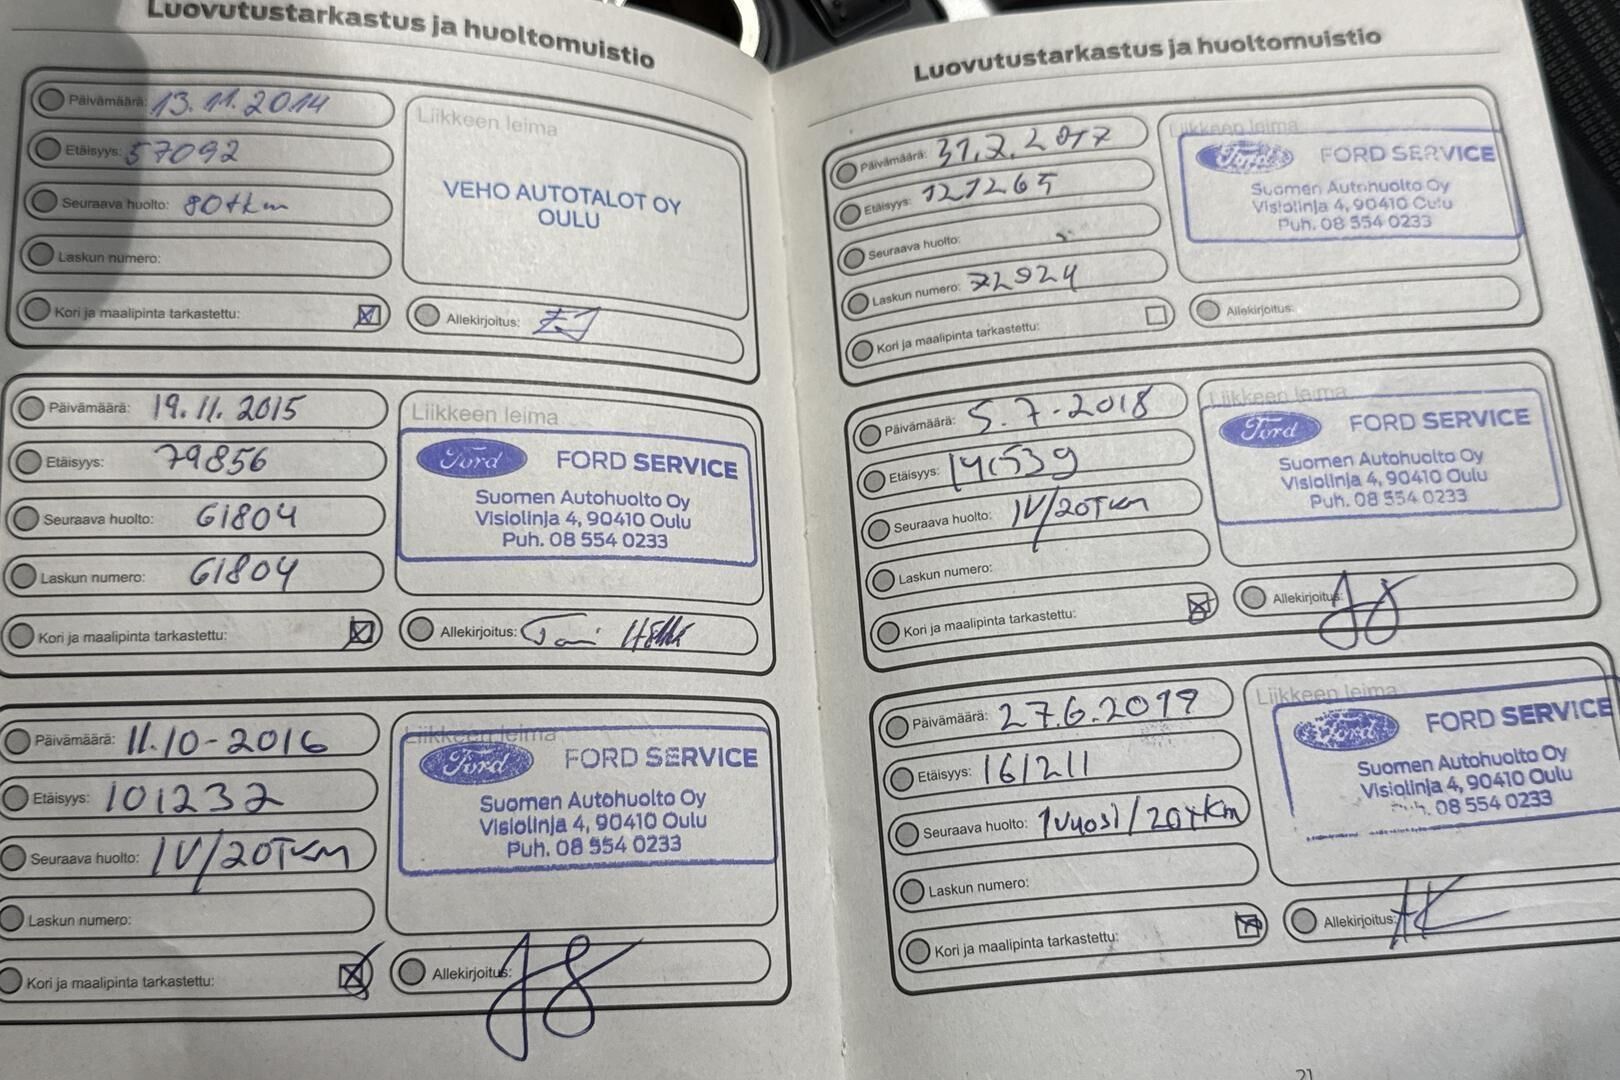 Luovutustarkastus ja huoltomuistio
Päivämäärä: 13.11.2014
Etäisyys: 57092
Seuraava huolto: 80tkm
Laskun numero:
Kori ja maalipinta tarkastettu:
Liikkeen leima
VEHO AUTOTALOT OY
OULU
Allekirjoitus:
Päivämäärä: 19.11.2015
Etäisyys: 79856
Seuraava huolto: 61804
Laskun numero: 61804
Kori ja maalipinta tarkastettu:
Liikkeen leima
Ford FORD SERVICE
Suomen Autohuolto Oy
Visiolinja 4, 90410 Oulu
Puh. 08 554 0233
Allekirjoitus:
Päivämäärä: 11.10-2016
Etäisyys: 101232
Seuraava huolto: 1V/20TKM
Laskun numero:
Kori ja maalipinta tarkastettu:
Liikkeen leima
Ford FORD SERVICE
Suomen Autohuolto Oy
Visiolinja 4, 90410 Oulu
Puh. 08 554 0233
Allekirjoitus:
Luovutustarkastus ja huoltomuistio
Päivämäärä: 31.7.2017
Etäisyys: 121265
Seuraava huolto:
Laskun numero: 72924
Kori ja maalipinta tarkastettu:
Liikkeen leima
Ford FORD SERVICE
Suomen Autohuolto Oy
Visiolinja 4, 90410 Oulu
Puh. 08 554 0233
Allekirjoitus:
Päivämäärä: 5.7-2018
Etäisyys:
Seuraava huolto: 1V/20TKM
Laskun numero:
Kori ja maalipinta tarkastettu:
Liikkeen leima
Ford FORD SERVICE
Suomen Autohuolto Oy
Visiolinja 4, 90410 Oulu
Puh. 08 554 0233
Allekirjoitus:
Päivämäärä: 27.6.2019
Etäisyys: 161211
Seuraava huolto: 1vuosi/20tkm
Laskun numero:
Kori ja maalipinta tarkastettu:
Liikkeen leima
Ford FORD SERVICE
Suomen Autohuolto Oy
Visiolinja 4, 90410 Oulu
08 554 0233
Allekirjoitus: AK
21